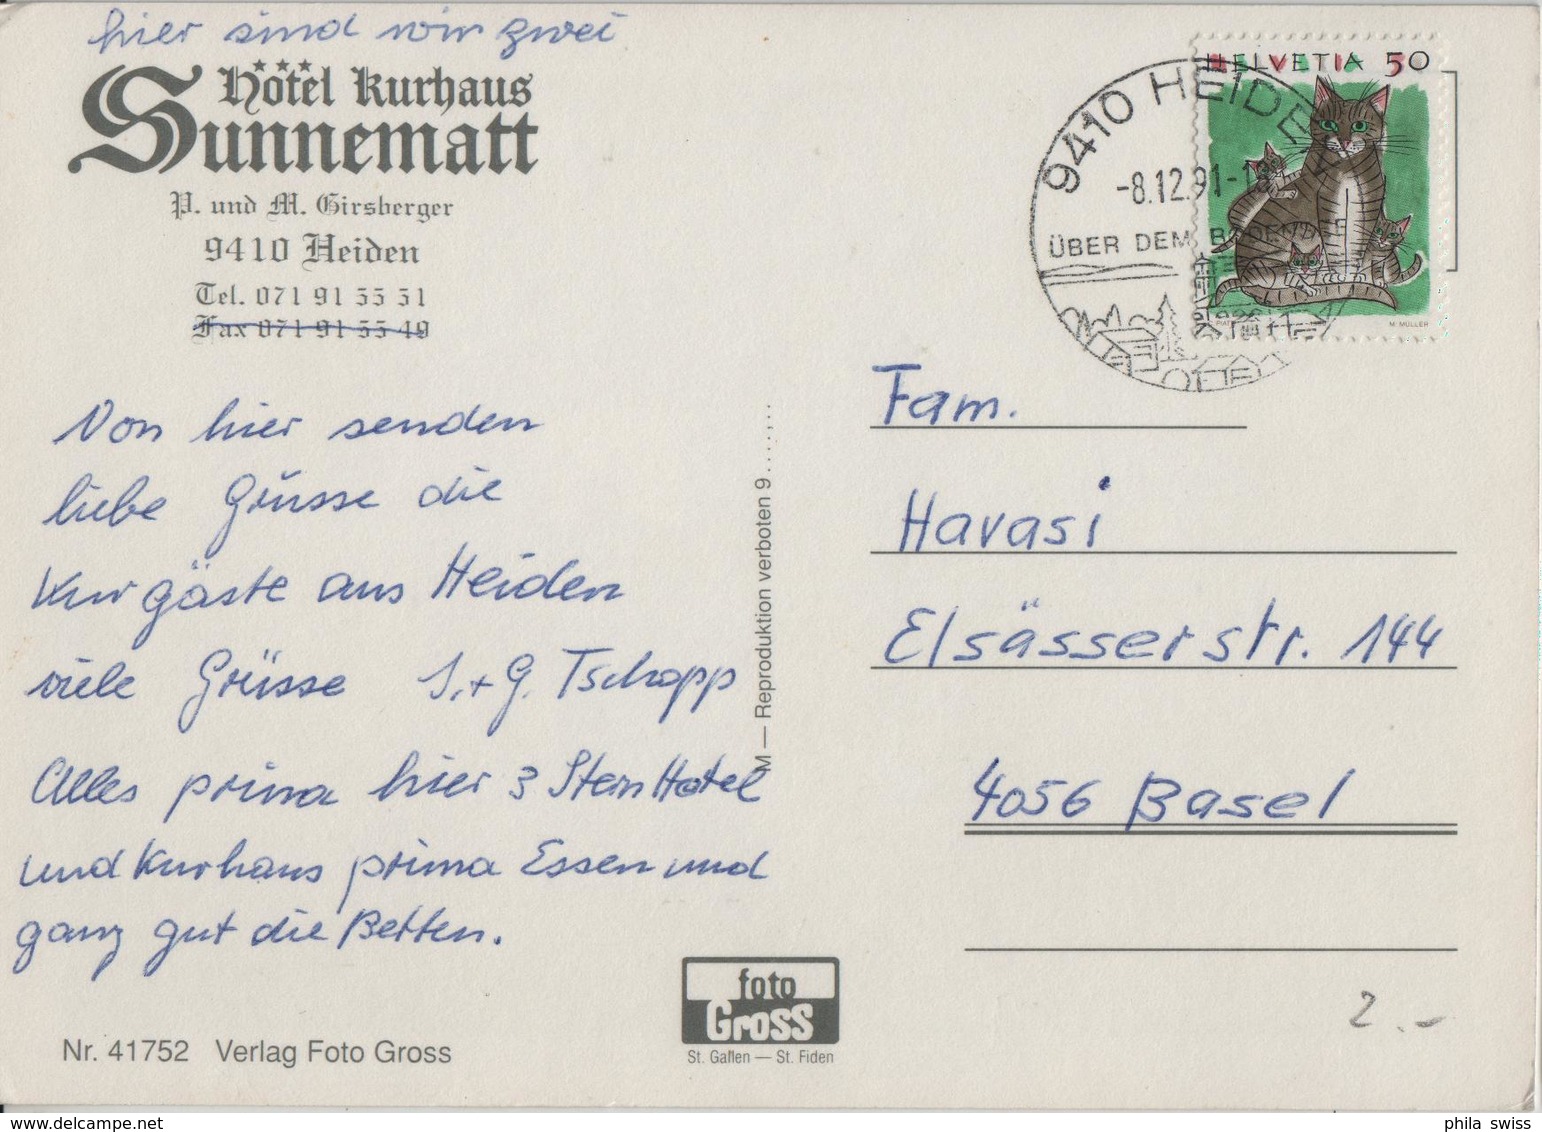 hier sind wir zwei
Hotel Kurhaus
Sunnematt
P. und M. Girsberger
9410 Heiden
Tel. 071 91 55 51
Fax 071 91 55 49
Von hier senden
liebe Grüsse die
Kurgäste aus Heiden
viele Grüsse S. + G. Tschopp
Alles prima hier 3 Stern Hotel
und Kurhaus prima Essen und
ganz gut die Betten.
Nr. 41752 Verlag Foto Gross
M — Reproduktion verboten 9......,..
foto
Gross
St. Gallen — St. Fiden
HELVETIA 50
M. MÜLLER
9410 HEIDEN
-8.12.91-1
ÜBER DEM BODENSEE
Fam.
Havasi
Elsässerstr. 144
4056 Basel
2.-
phila swiss